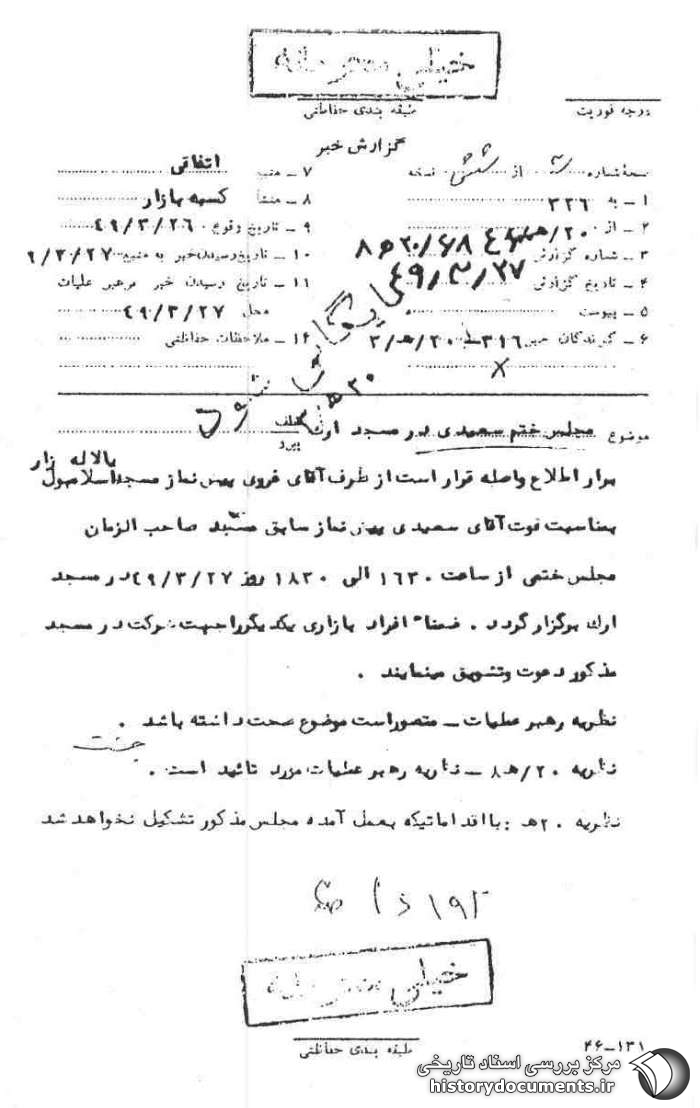 خیلی محرمانه
درجه فوریت
طبقه بندی حفاظتی
گزارش خبر
نسخه شماره از شش نسخه
۱ – به ۳۲۶
۲ – از ۲۰/هـ
۳ – شماره گزارش
۴ – تاریخ گزارش ۴۹/۳/۲۷
۵ – پیوست
۶ – گیرندگان خبر ۳۱۶
۷ – منبع اتفاقی
۸ – منشأ کسبه بازار
۹ – تاریخ وقوع ۴۹/۳/۲۶
۱۰ – تاریخ رسیدن خبر به منبع ۹/۳/۲۷
۱۱ – تاریخ رسیدن خبر برهبر عملیات
محل ۴۹/۳/۲۷
۱۲ – ملاحظات حفاظتی
بایگانی شود
۲۰ هـ
موضوع مجلس ختم سعیدی در مسجد ارک
بالاله زار
برابر اطلاع واصله قرار است از طرف آقای فروی پیش نماز مسجد
بمناسبت فوت آقای سعیدی پیش نماز سابق مسجد صاحب الزمان
مجلس ختمی از ساعت ۱۶۳۰ الی ۱۸۳۰ روز ۴۹/۳/۲۷ در مسجد
ارک برگزار گردد . ضمناً افراد بازاری یکدیگر را جهت شرکت در مسجد
مذکور دعوت و تشویق مینمایند .
نظریه رهبر عملیات – متصور است موضوع صحت داشته باشد .
نظریه ۲۰/هـ ۸ – نظریه رهبر عملیات مورد تائید است .
نظریه ۲۰ هـ : با اقداماتیکه بعمل آمده مجلس مذکور تشکیل نخواهد شد
خیلی محرمانه
طبقه بندی حفاظتی
۴۶–۱۳۱
مرکز بررسی اسناد تاریخی
historydocuments.ir